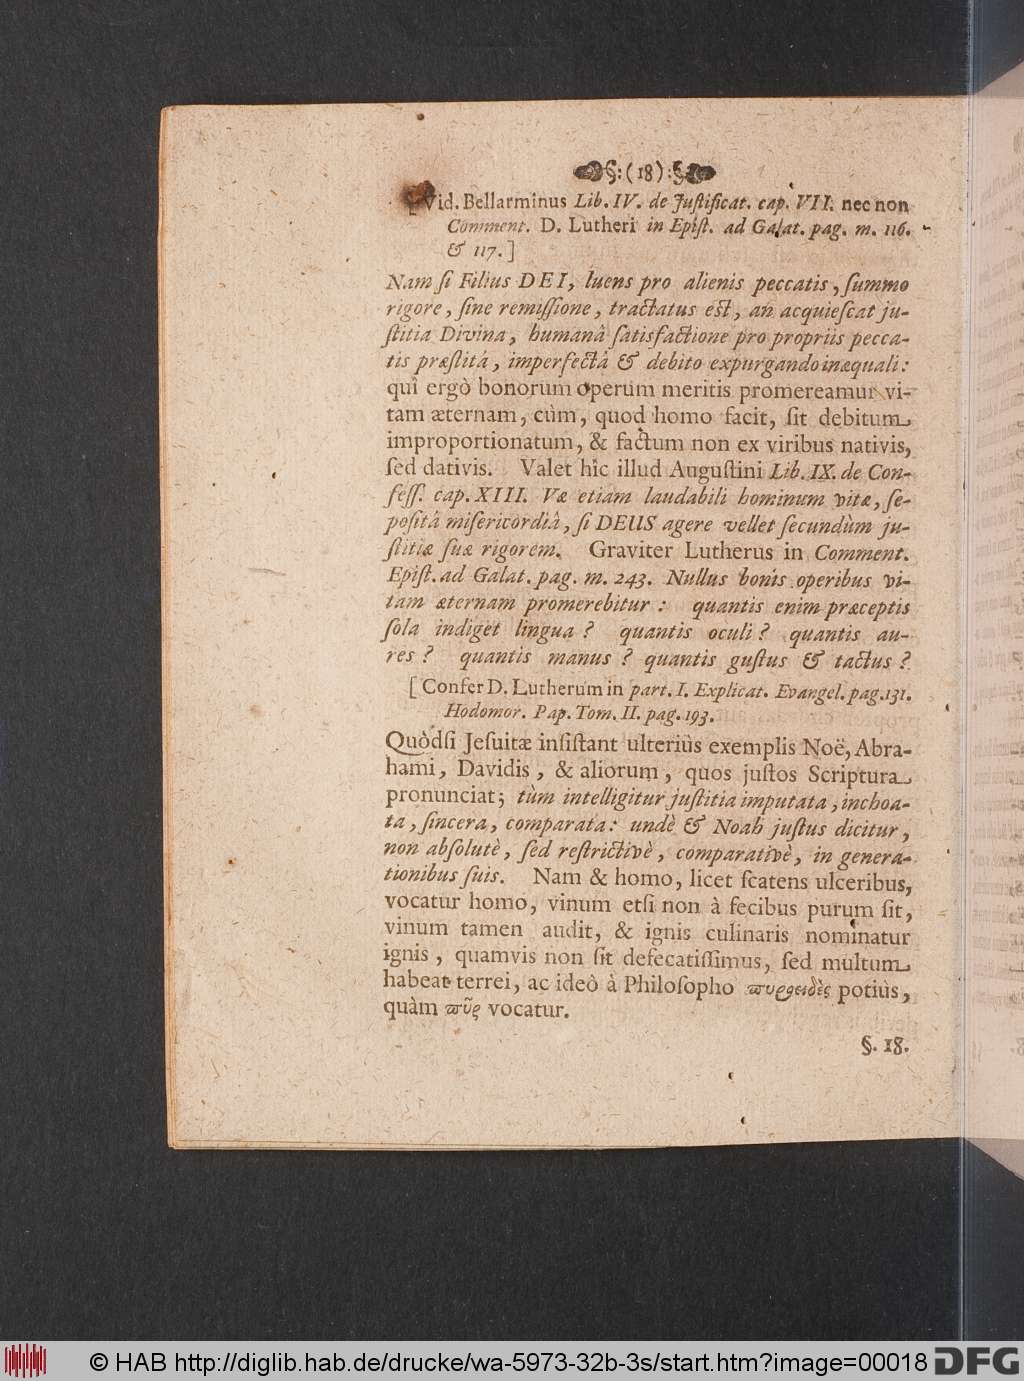 §:(18):§
[ Vid. Bellarminus Lib. IV. de Juſtificat. cap. VII. nec non
Comment. D. Lutheri in Epiſt. ad Galat. pag. m. 116.
& 117. ]
Nam ſi Filius DEI, luens pro alienis peccatis, ſummo
rigore, ſine remiſſione, tractatus eſt, an acquieſcat ju-
ſtitia Divina, humanâ ſatisfactione pro propriis pecca-
tis præſtitâ, imperfectâ & debito expurgando inæquali:
quî ergò bonorum operum meritis promereamur vi-
tam æternam, cùm, quod homo facit, ſit debitum
improportionatum, & factum non ex viribus nativis,
ſed dativis. Valet hîc illud Auguſtini Lib. IX. de Con-
feſſ. cap. XIII. Væ etiam laudabili hominum vitæ, ſe-
poſitâ miſericordiâ, ſi DEUS agere vellet ſecundùm ju-
ſtitiæ ſuæ rigorem. Graviter Lutherus in Comment.
Epiſt. ad Galat. pag. m. 243. Nullus bonis operibus vi-
tam æternam promerebitur: quantis enim præceptis
ſola indiget lingua? quantis oculi? quantis au-
res? quantis manus? quantis guſtus & tactus?
[ Confer D. Lutherum in part. I. Explicat. Evangel. pag. 131.
Hodomor. Pap. Tom. II. pag. 193.
Quòdſi Jeſuitæ inſiſtant ulteriùs exemplis Noë, Abra-
hami, Davidis, & aliorum, quos juſtos Scriptura
pronunciat; tùm intelligitur juſtitia imputata, inchoa-
ta, ſincera, comparata: undè & Noah juſtus dicitur,
non abſolutè, ſed reſtrictivè, comparativè, in genera-
tionibus ſuis. Nam & homo, licet ſcatens ulceribus,
vocatur homo, vinum etſi non à fecibus purum ſit,
vinum tamen audit, & ignis culinaris nominatur
ignis, quamvis non ſit defecatiſſimus, ſed multum
habeat terrei, ac ideò à Philoſopho ϖυροειδὲς potiùs,
quàm ϖῦρ vocatur.
§. 18.
© HAB http://diglib.hab.de/drucke/wa-5973-32b-3s/start.htm?image=00018 DFG